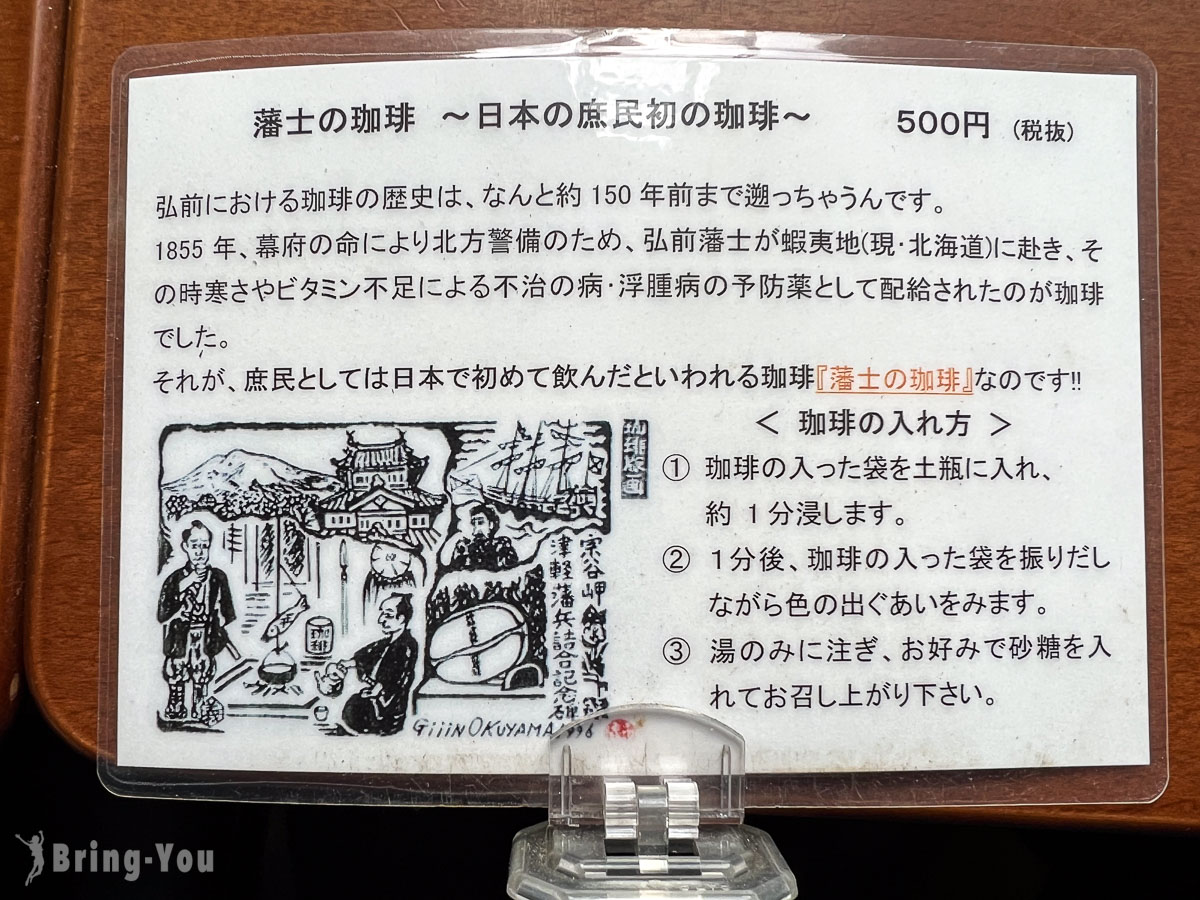 藩士の珈琲 ～日本の庶民初の珈琲～ 500円 (税抜)
弘前における珈琲の歴史は、なんと約 150 年前まで遡っちゃうんです。
1855 年、幕府の命により北方警備のため、弘前藩士が蝦夷地(現･北海道)に赴き、そ
の時寒さやビタミン不足による不治の病･浮腫病の予防薬として配給されたのが珈琲
でした。
それが、庶民としては日本で初めて飲んだといわれる珈琲『藩士の珈琲』なのです!!
＜ 珈琲の入れ方 ＞
① 珈琲の入った袋を土瓶に入れ、
約 1 分浸します。
② 1分後、珈琲の入った袋を振りだし
ながら色の出ぐあいをみます。
③ 湯のみに注ぎ、お好みで砂糖を入
れてお召し上がり下さい。
珈琲版画
宗谷岬
津軽藩兵詰合記念碑
珈琲
GiiinOKUYAMA 1996
Bring-You